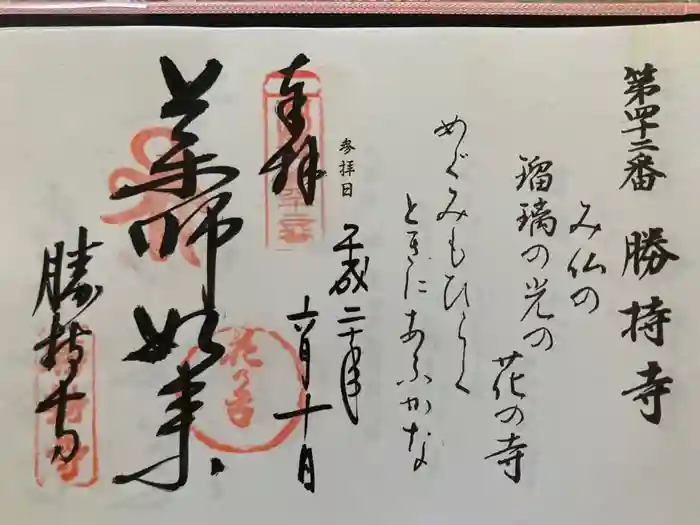 第四十二番 勝持寺
み仏の
瑠璃の光の
花の寺
めぐみもひらく
ときにあふかな
参拝日
平成二十年
六月十日
奉拝
薬師如来
勝持寺
花の寺